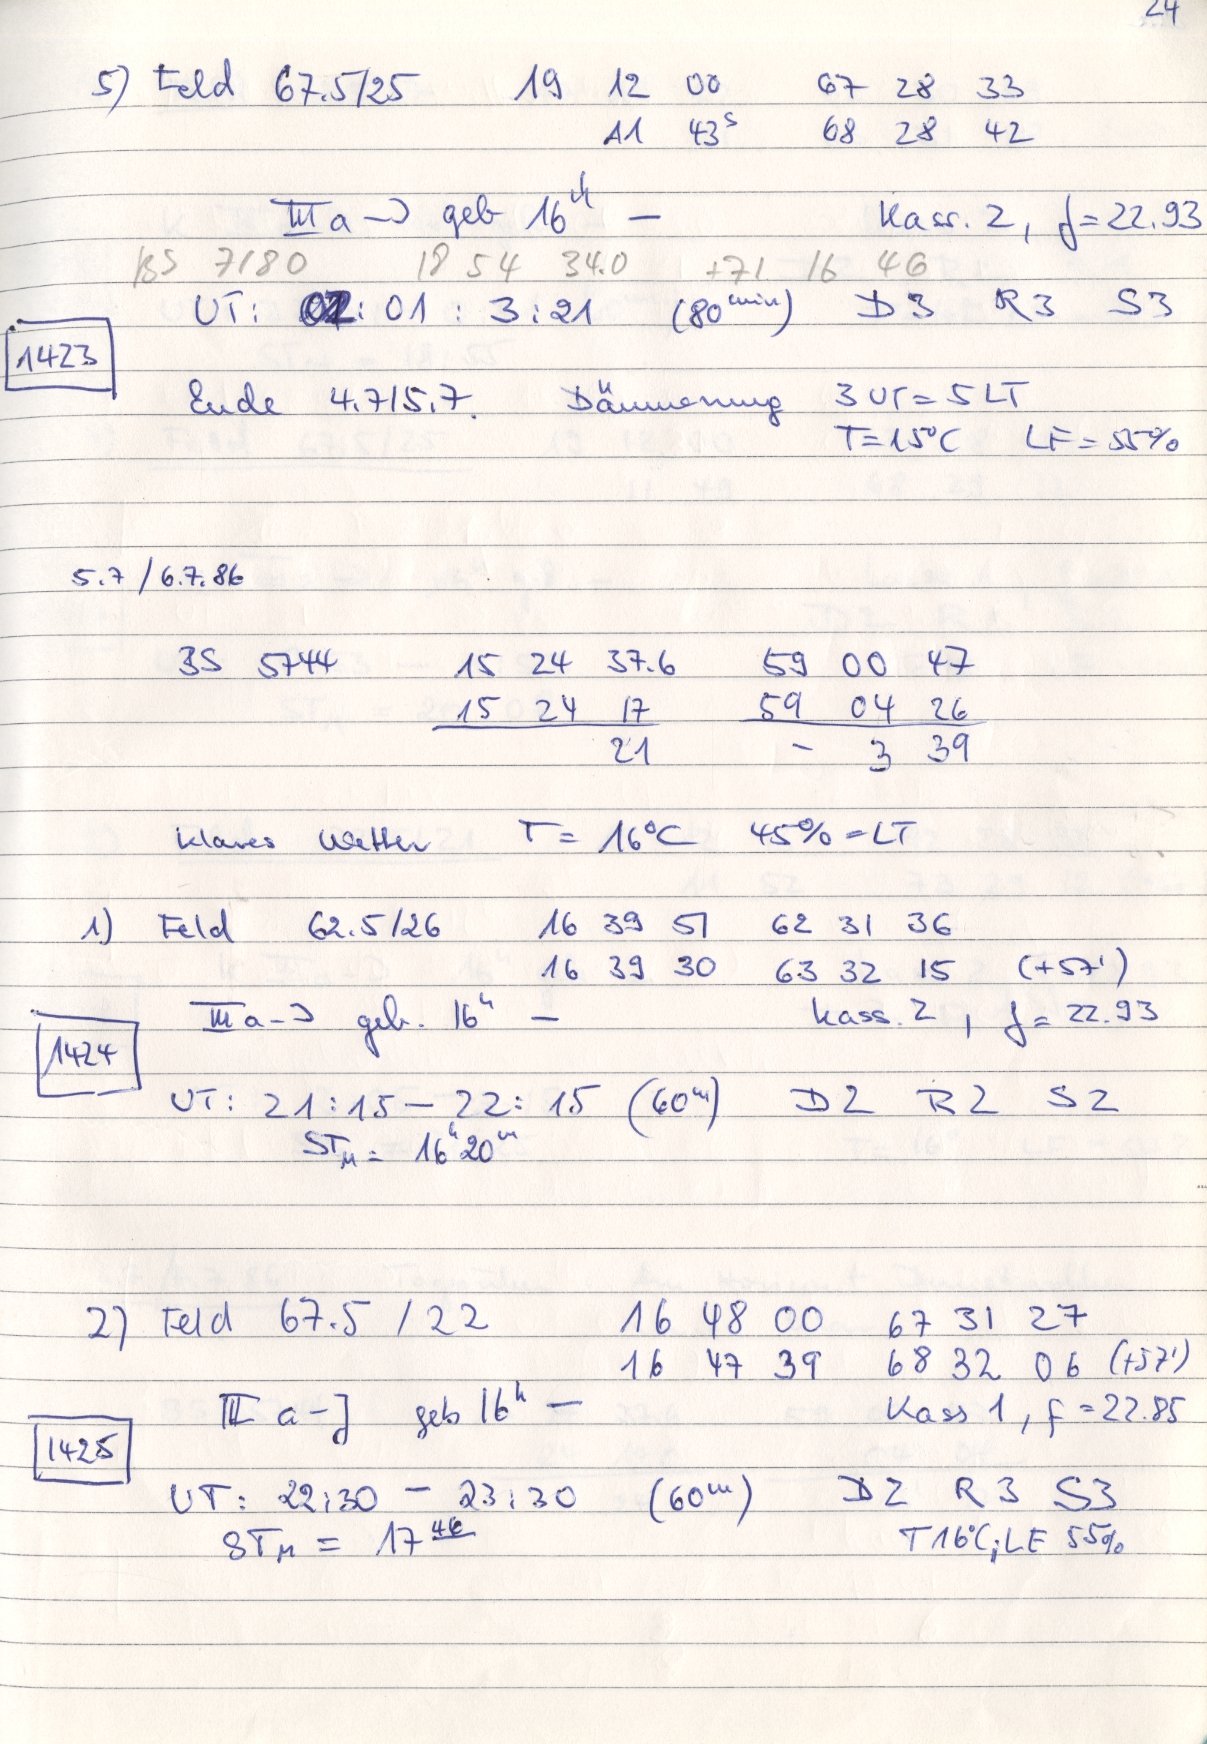 24
5) Feld 67.5/25 19 12 00 67 28 33
11 43ˢ 68 28 42
III a-J geb 16ʰ — Kass. 2, f=22.93
BS 7180 18 54 34.0 +71 16 46
UT: 02:01 : 3:21 (80ᵐⁱⁿ) D3 R3 S3
1423
Ende 4.7/5.7. Dämmerung 3 UT = 5 LT
T=15°C LF=55%
5.7/6.7.86
BS 5744 15 24 37.6 59 00 47
15 24 17 59 04 26
21 - 3 39
klares Wetter T= 16°C 45% = LT
1) Feld 62.5/26 16 39 51 62 31 36
16 39 30 63 32 15 (+57')
III a-J geb. 16ʰ — Kass. 2, f= 22.93
1424
UT: 21:15 — 22:15 (60ᵐ) D2 R2 S2
STM = 16ʰ20ᵐ
2) Feld 67.5 / 22 16 48 00 67 31 27
16 47 39 68 32 06 (+57')
III a-J geb 16ʰ — Kass 1, f=22.85
1425
UT: 22:30 — 23:30 (60ᵐ) D2 R3 S3
STM = 17 T16°C; LF 55%